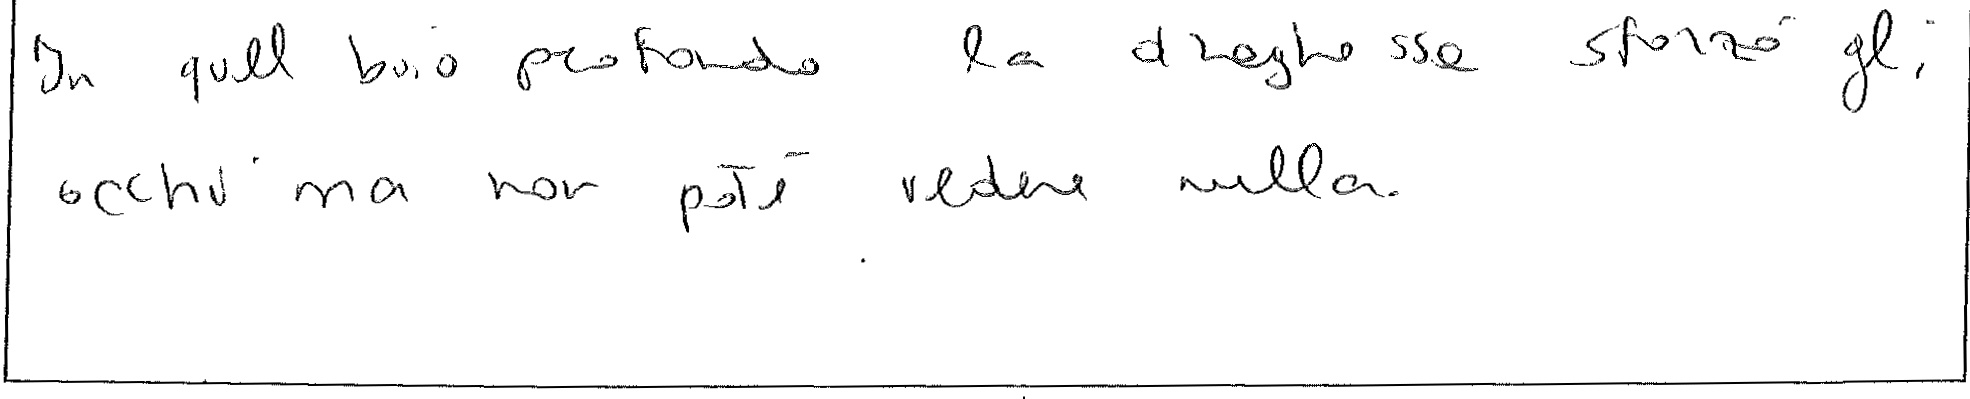 In quell buio profondo la draghessa sforzò gli
occhi ma non poté vedere nulla.